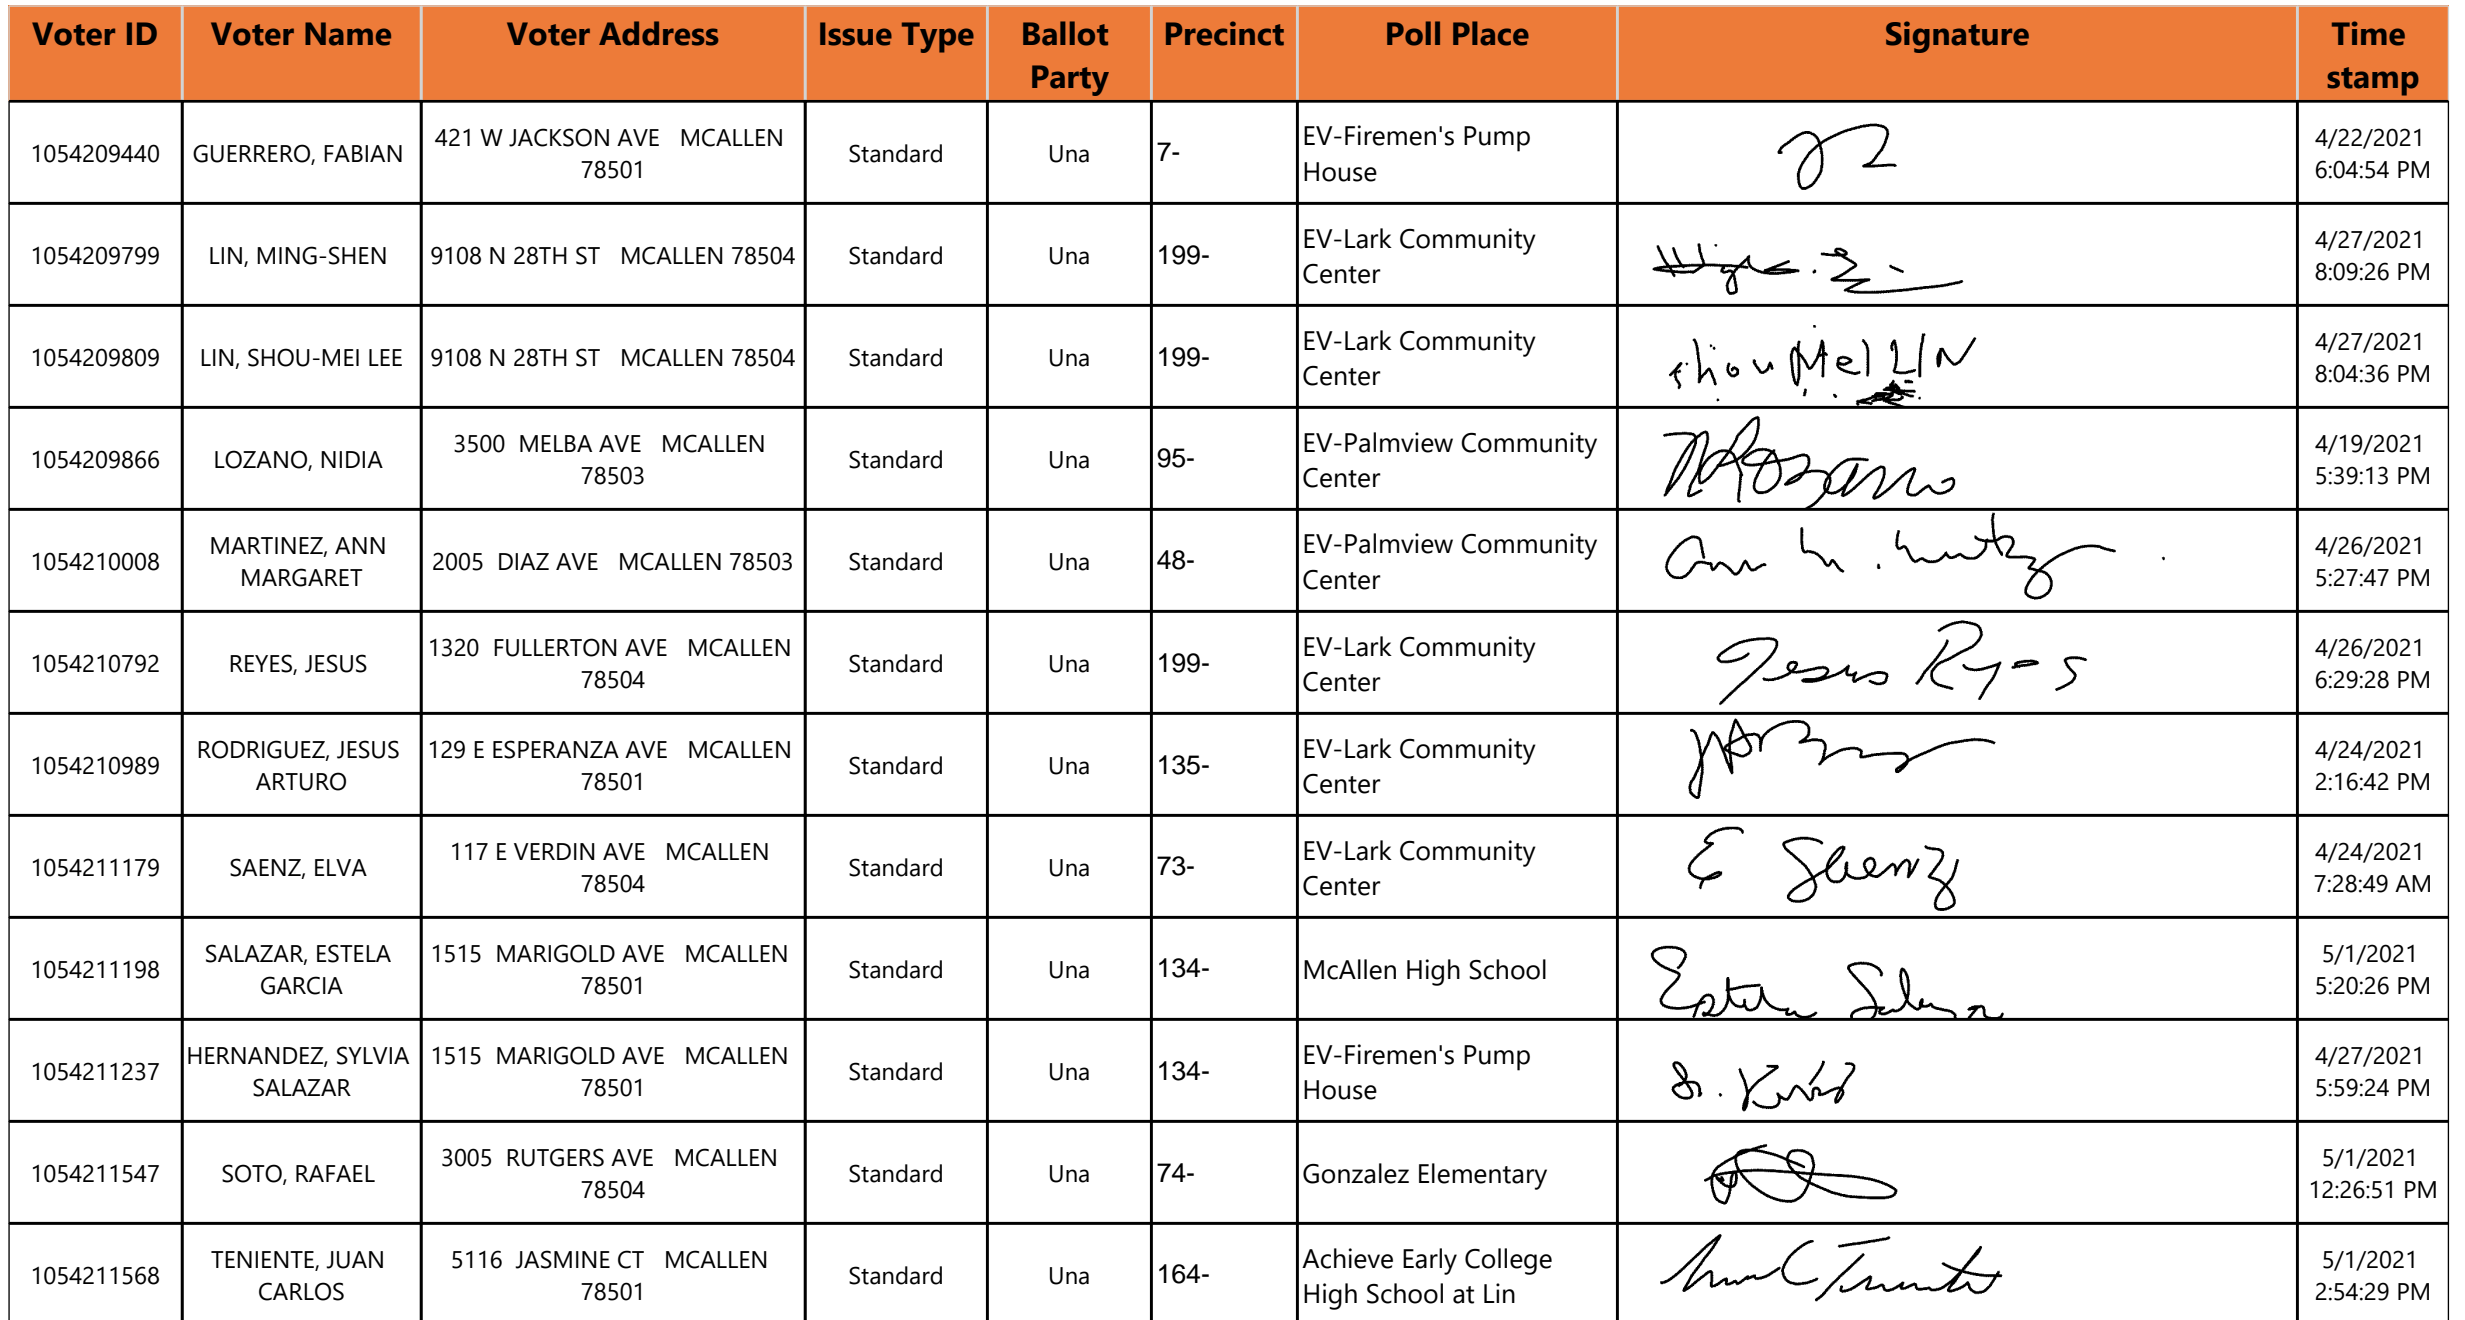 Voter ID Voter Name Voter Address Issue Type Ballot Party Precinct Poll Place Signature Time stamp
1054209440 GUERRERO, FABIAN 421 W JACKSON AVE MCALLEN 78501 Standard Una 7- EV-Firemen's Pump House 4/22/2021 6:04:54 PM
1054209799 LIN, MING-SHEN 9108 N 28TH ST MCALLEN 78504 Standard Una 199- EV-Lark Community Center 4/27/2021 8:09:26 PM
1054209809 LIN, SHOU-MEI LEE 9108 N 28TH ST MCALLEN 78504 Standard Una 199- EV-Lark Community Center Shou Mei LIN 4/27/2021 8:04:36 PM
1054209866 LOZANO, NIDIA 3500 MELBA AVE MCALLEN 78503 Standard Una 95- EV-Palmview Community Center 4/19/2021 5:39:13 PM
1054210008 MARTINEZ, ANN MARGARET 2005 DIAZ AVE MCALLEN 78503 Standard Una 48- EV-Palmview Community Center 4/26/2021 5:27:47 PM
1054210792 REYES, JESUS 1320 FULLERTON AVE MCALLEN 78504 Standard Una 199- EV-Lark Community Center Jesus Reyes 4/26/2021 6:29:28 PM
1054210989 RODRIGUEZ, JESUS ARTURO 129 E ESPERANZA AVE MCALLEN 78501 Standard Una 135- EV-Lark Community Center 4/24/2021 2:16:42 PM
1054211179 SAENZ, ELVA 117 E VERDIN AVE MCALLEN 78504 Standard Una 73- EV-Lark Community Center E Saenz 4/24/2021 7:28:49 AM
1054211198 SALAZAR, ESTELA GARCIA 1515 MARIGOLD AVE MCALLEN 78501 Standard Una 134- McAllen High School Estela Salazar 5/1/2021 5:20:26 PM
1054211237 HERNANDEZ, SYLVIA SALAZAR 1515 MARIGOLD AVE MCALLEN 78501 Standard Una 134- EV-Firemen's Pump House 4/27/2021 5:59:24 PM
1054211547 SOTO, RAFAEL 3005 RUTGERS AVE MCALLEN 78504 Standard Una 74- Gonzalez Elementary 5/1/2021 12:26:51 PM
1054211568 TENIENTE, JUAN CARLOS 5116 JASMINE CT MCALLEN 78501 Standard Una 164- Achieve Early College High School at Lin 5/1/2021 2:54:29 PM